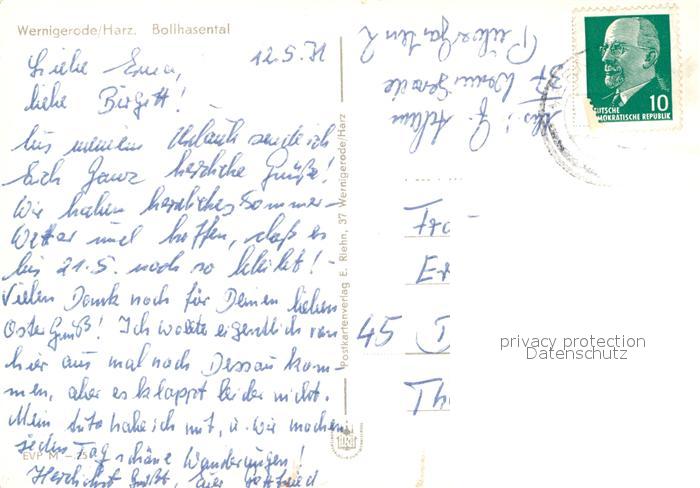 Wernigerode/Harz. Bollhasental
12.5.71
Liebe Erna,
liebe Birgitt!
Aus meinem Urlaub sende ich
Euch ganz herzliche Grüße!
Wir haben herrliches Sommer-
Wetter und hoffen, daß es
bis 21.5. noch so bleibt! -
Vielen Dank noch für Deinen lieben
Oster Gruß! Ich wollte eigentlich von
hier aus mal nach Dessau kom-
men, aber es klappt leider nicht.
Mein Auto habe ich mit, u. wir machen
jeden Tag schöne Wanderungen!
Herzlichst grüßt, Euer Gottfried
EVP M -,25
Postkartenverlag E. Riehn, 37 Wernigerode/Harz
Abs.: G.
37 Wernigerode
2
10
DEUTSCHE
DEMOKRATISCHE REPUBLIK
Fra
Er
45 D
Th
privacy protection
Datenschutz